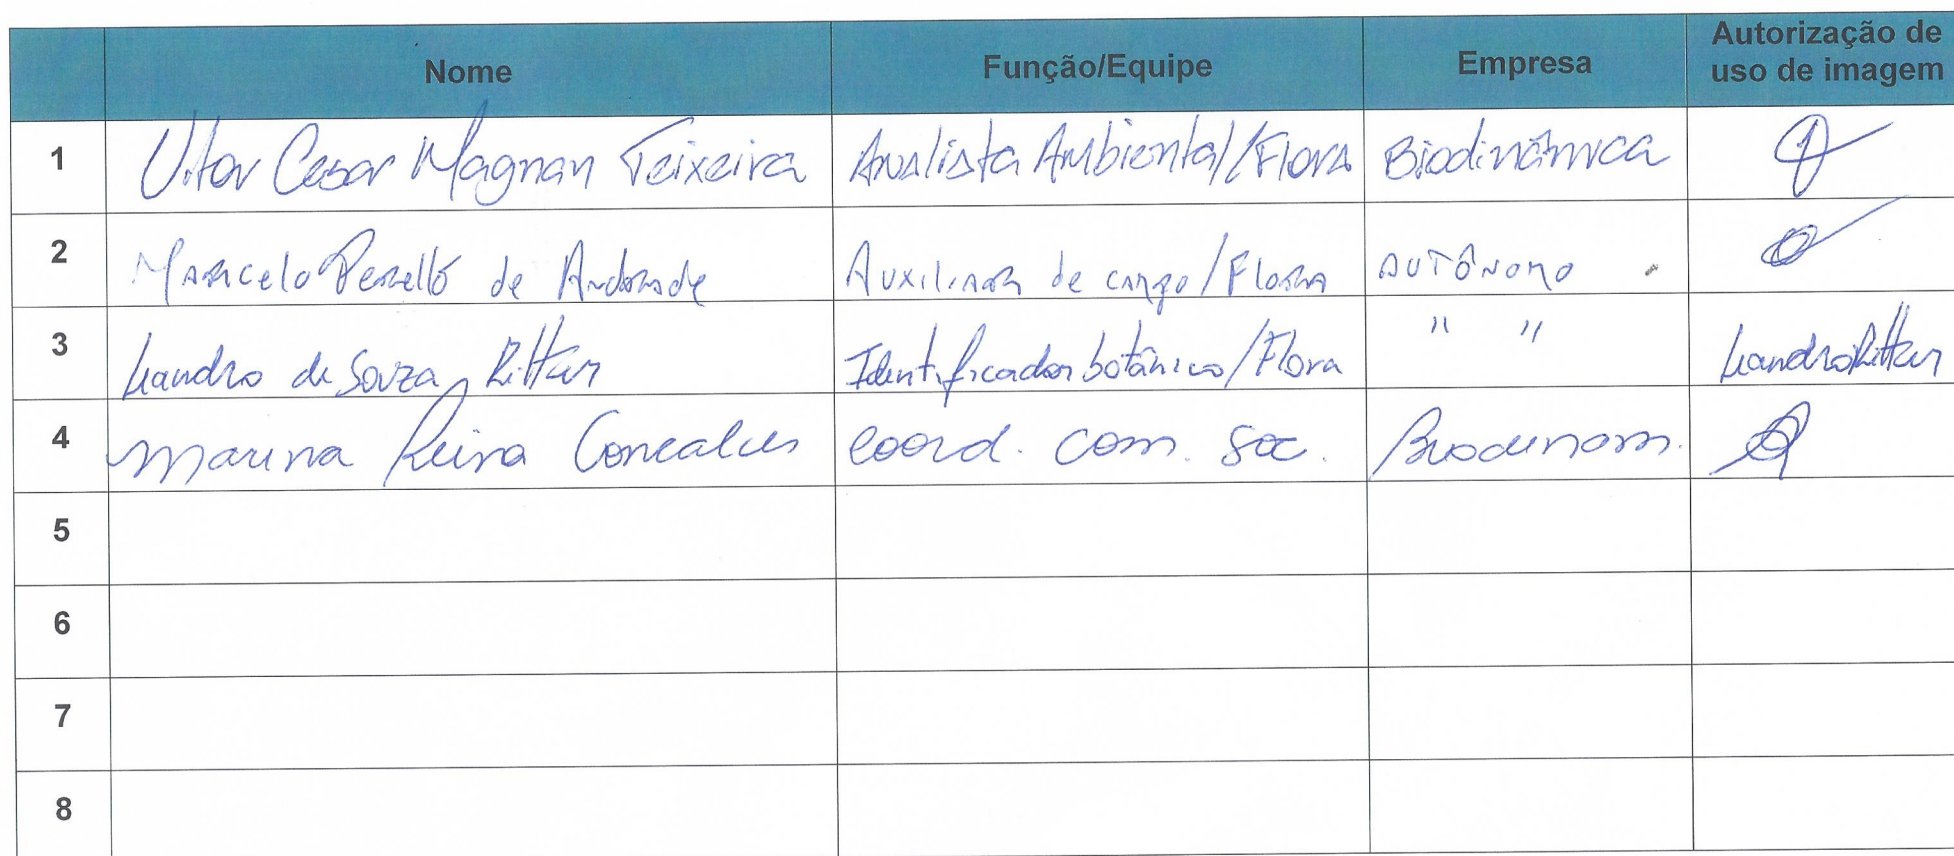 Nome Função/Equipe Empresa Autorização de uso de imagem
1 Vitor Cesar Magnan Teixeira Analista Ambiental/Flora Biodinâmica
2 Marcelo de Andrade Auxiliar de campo/Flora AUTÔNOMO
3 Leandro de Souza Ritter Identificador botânico/Flora " " Leandro Ritter
4 Marina Reina Goncalves coord. com. soc. Biodinam.
5
6
7
8